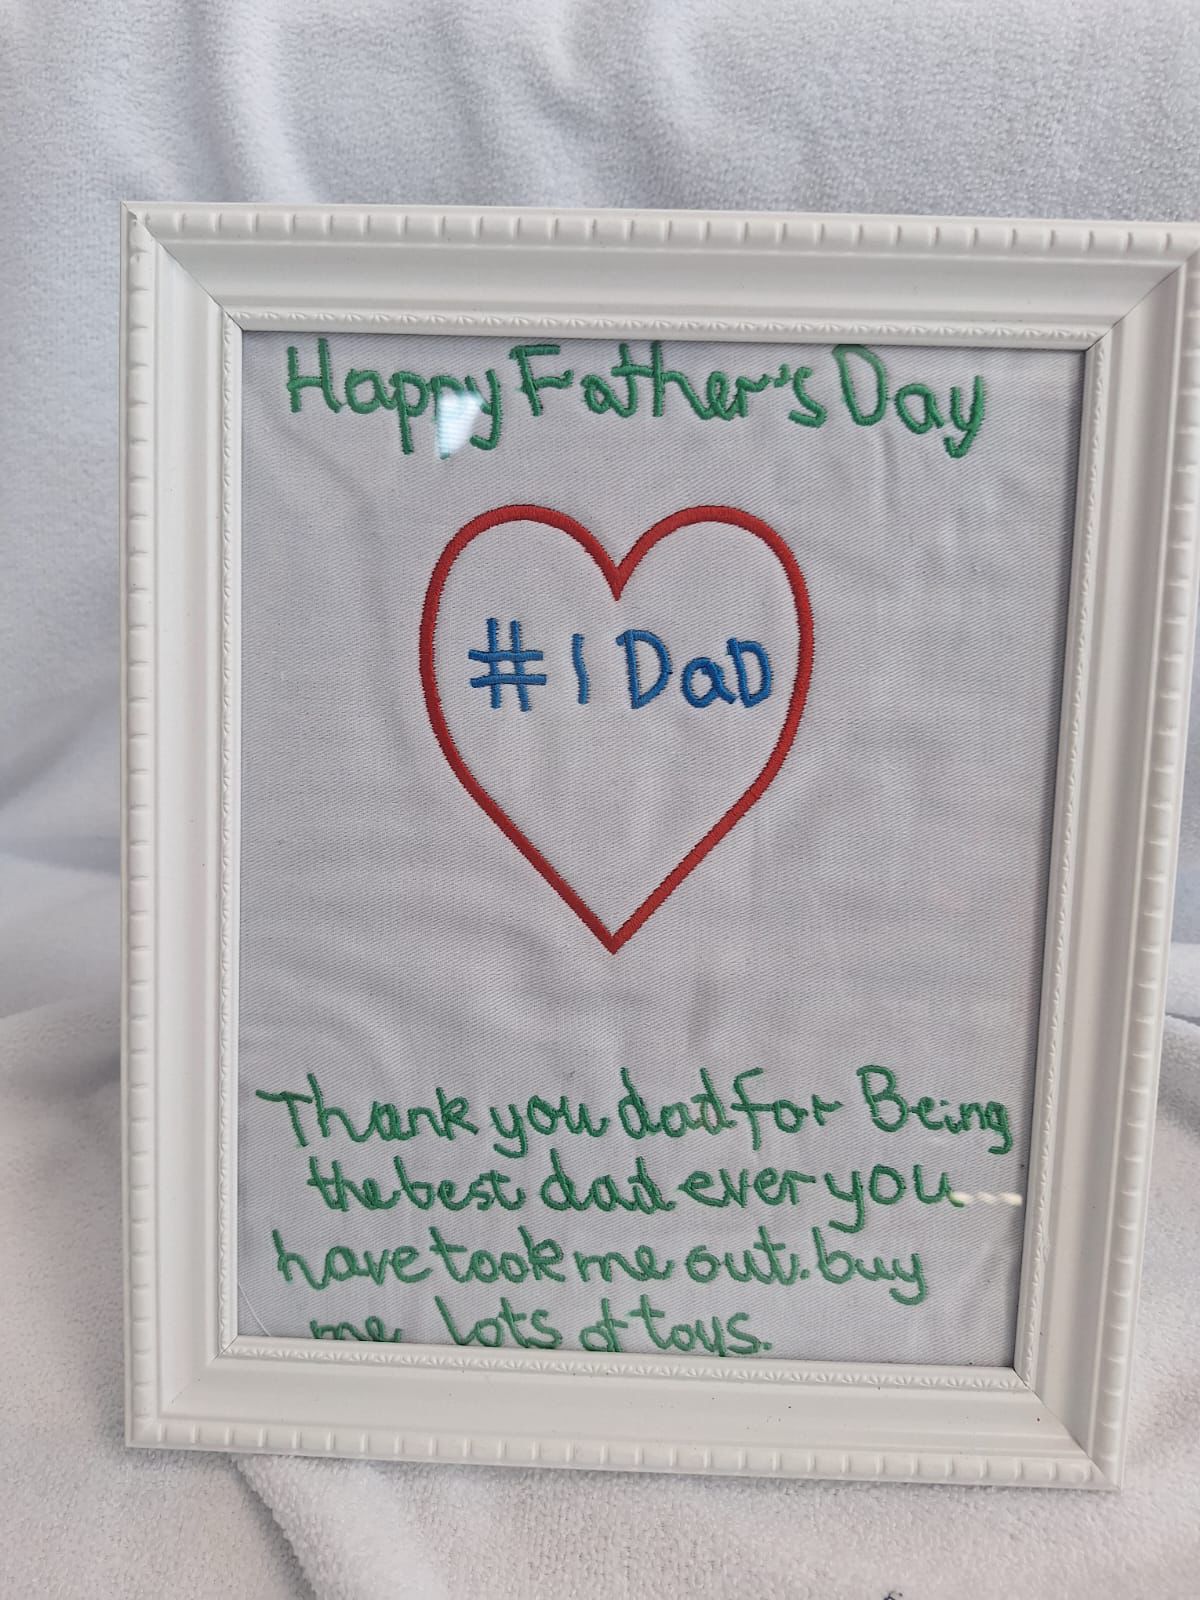 Happy Father's Day
# 1 DaD
Thank you dad for Being
the best dad ever you
have took me out. buy
me lots of toys.